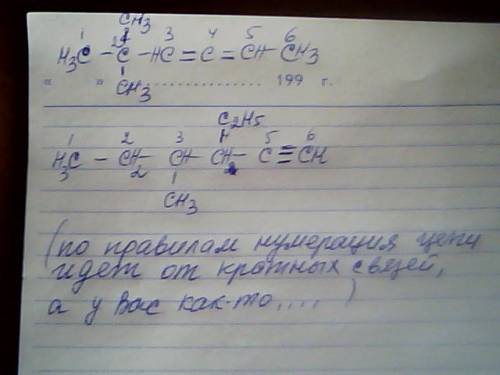 CH3
1 2 3 4 5 6
H3C - C - HC = C = CH - CH3
" " .......................... 199 г.
CH3
C2H5
1 2 3 5 6
H3C - CH2 - CH - CH - C ≡ CH
CH3
(по правилам нумерация цепи
идет от кратных связей,
а у Вас как-то.... )